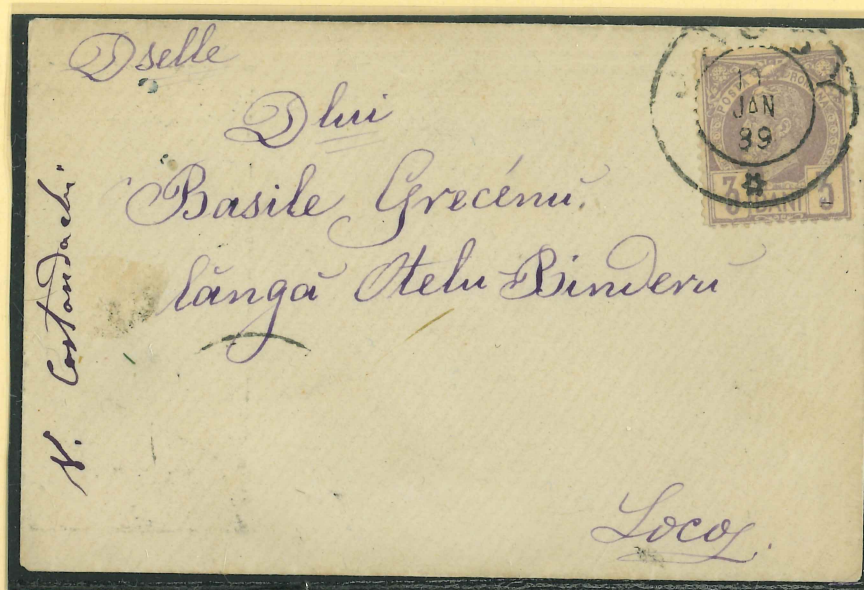 Dselle
Dlui
Basile Grecénu.
lângă Otelu Binderu
Loco
N. Costandachi
POSTA ROMANIA
3 BANI 3
JAN
89